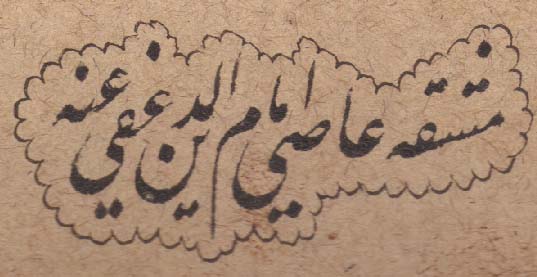 مشقہ عاصی امام الدین عفی عنہ